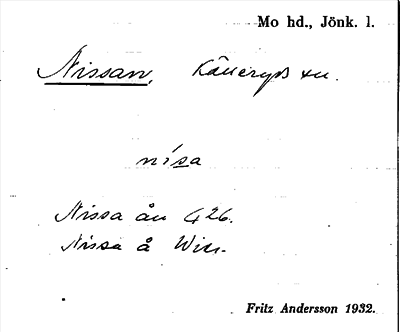 Mo hd., Jönk. l.
Nissan, Källeryds sn.
nísa
Nissa ån G 26.
Nissa å Wies.
Fritz Andersson 1932.